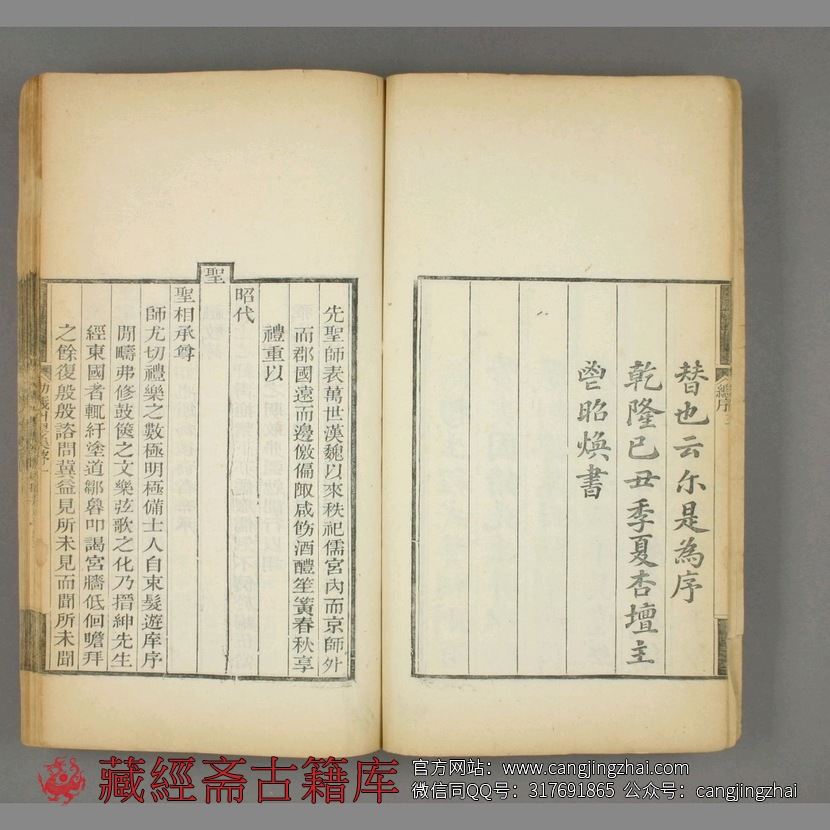 總序
替也云尓是為序
乾隆己丑季夏杏壇主
鬯昭煥書
先聖師表萬世漢魏以來秩祀儒宮內而京師外
而郡國遠而邊儌偏陬咸飭酒醴笙簧春秋享
禮重以
昭代
聖
聖相承尊
師尤切禮樂之數極明極備士人自束髮遊庠序
閒疇弗修鼓篋之文樂弦歌之化乃搢紳先生
經東國者輒紆塗道鄒魯叩謁宮牆低佪瞻拜
之餘復殷殷諮問冀益見所未見而聞所未聞
藏經斋古籍库
官方网站：www.cangjingzhai.com
微信同QQ号：317691865 公众号：cangjingzhai